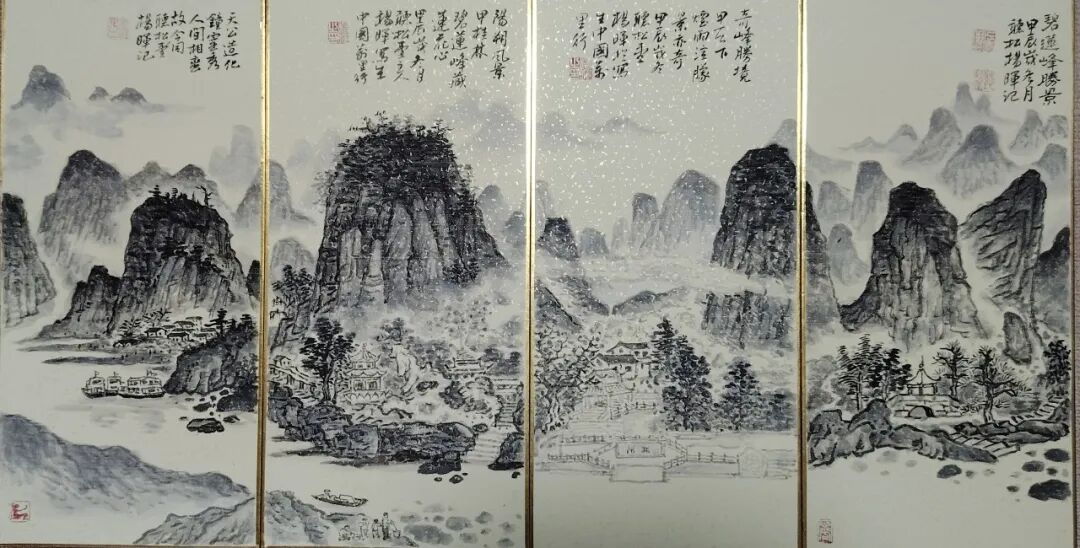 碧蓮峰勝景
甲辰歲冬月
聽松楊暉記
奇峰勝境
甲天下
煙雨
景亦奇
甲辰歲冬
聽松堂
楊暉於寫
生中國萬
里行
陽朔風景
甲桂林
碧蓮峰藏
蓮花心
甲辰歲冬月
聽松堂主人
楊暉寫生
中國萬里行
天公造化
鍾靈秀
人間相
故
聽松堂
楊暉記